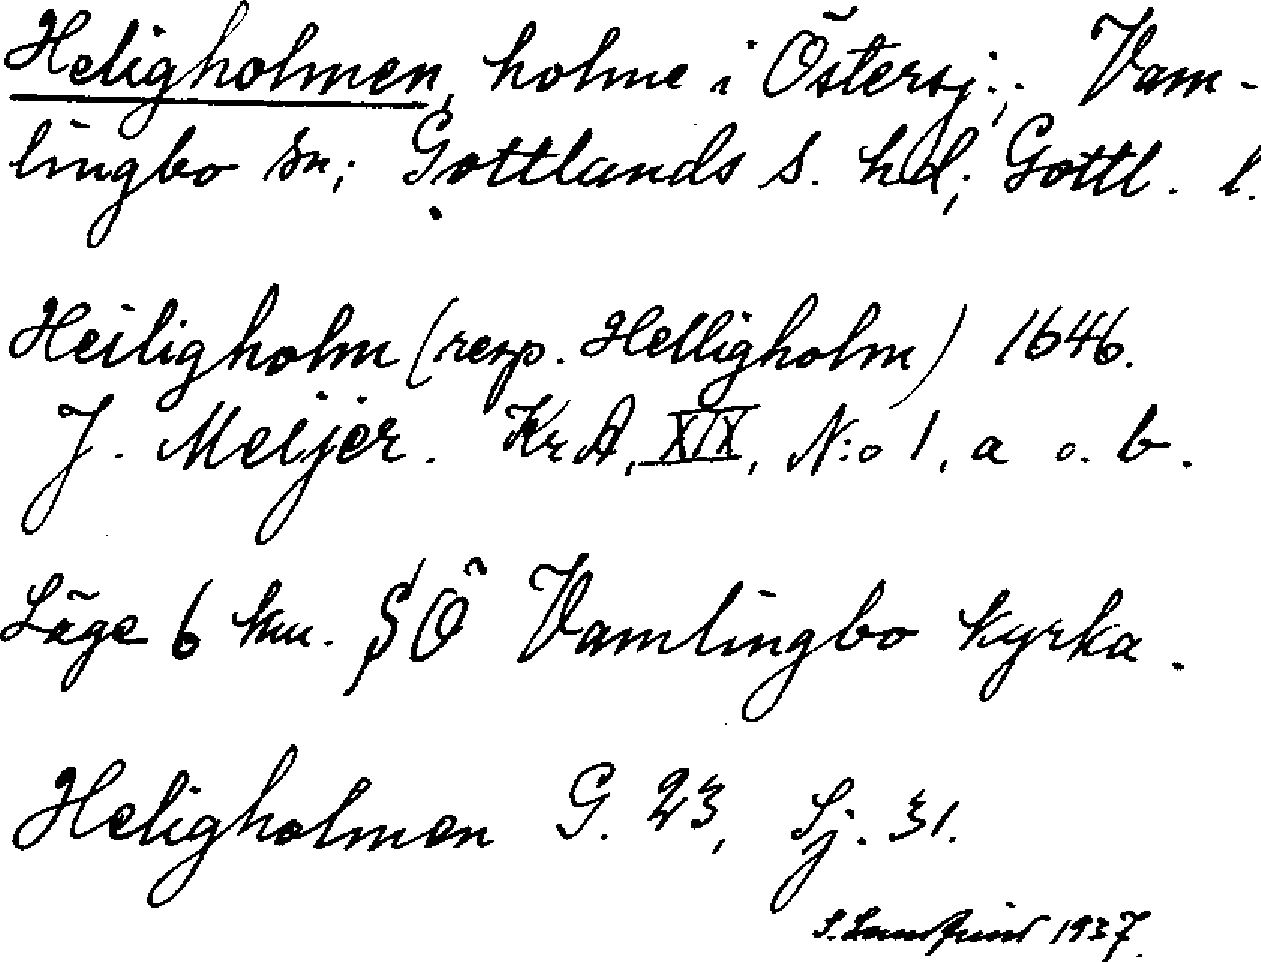 Heligholmen, holme i Östersj.; Vam-
lingbo sn; Gottlands s. hd; Gottl. l.
Heiligholm (resp. Helligholm) 1646.
J. Meijer. KrA, XIX, N:o 1, a o. b.
Läge 6 km. SÖ Vamlingbo kyrka.
Heligholmen G. 23, Sj. 31.
S. 1937.